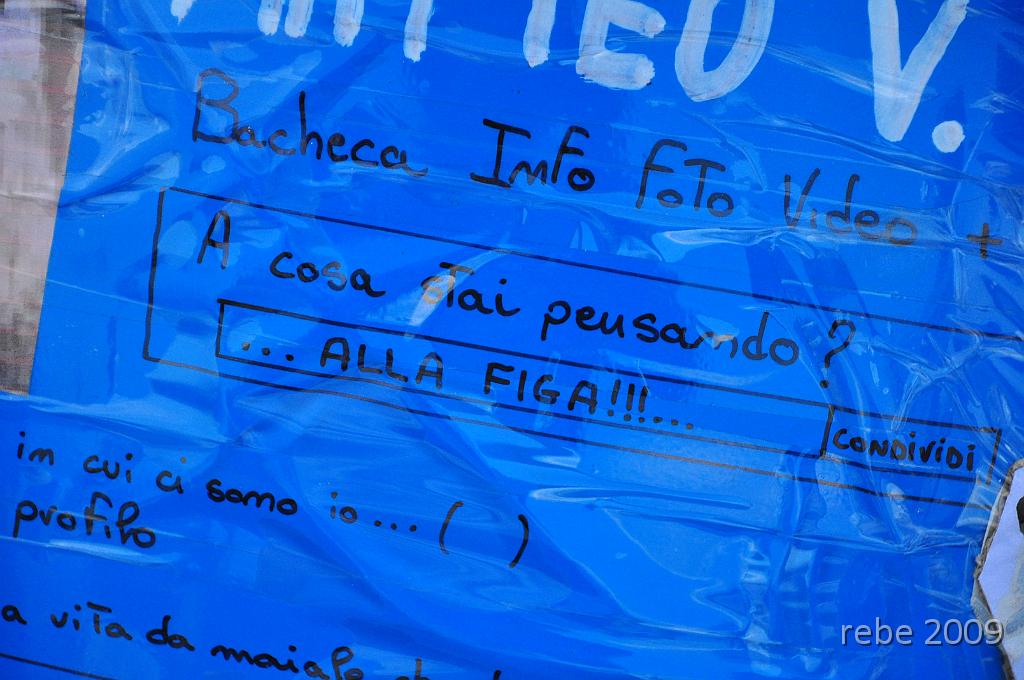 TEO V.
Bacheca Info Foto Video +
A cosa stai pensando?
... ALLA FIGA!!!...
CONDIVIDI
in cui ci sono io... ( )
profilo
a vita da maiale
rebe 2009